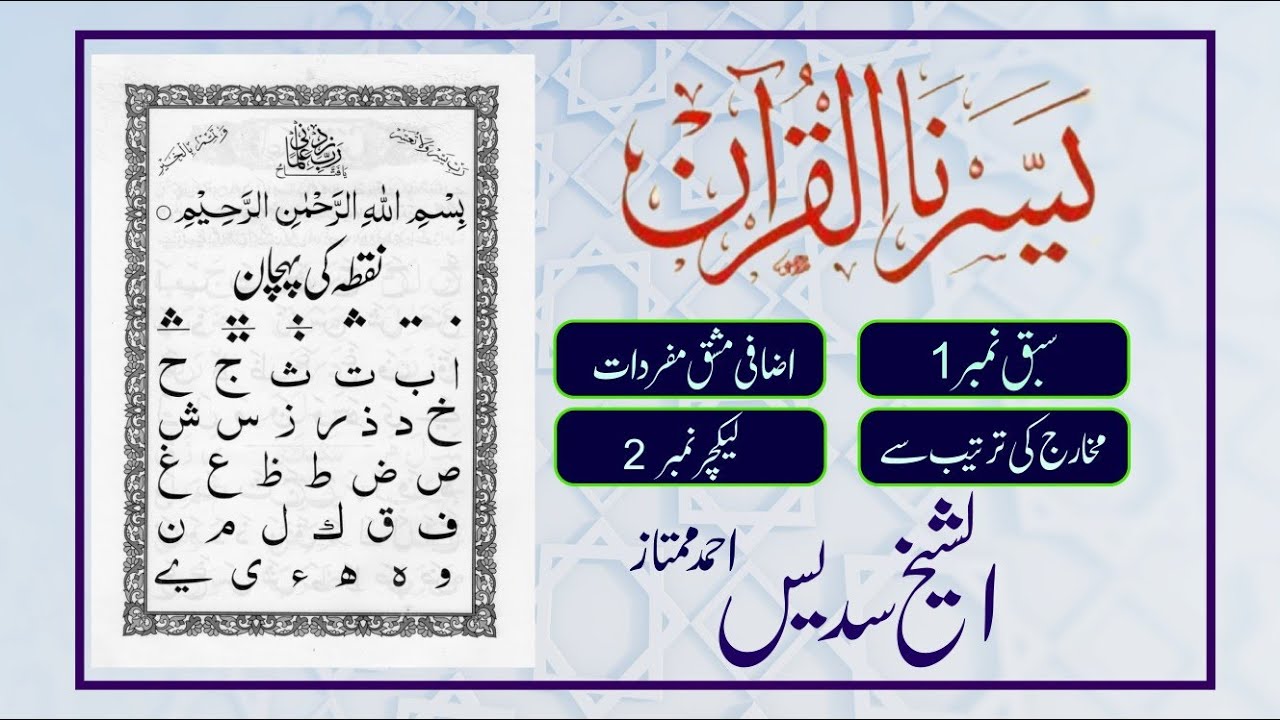 یسرنا القرآن
سبق نمبر 1
اضافی مشق مفردات
مخارج کی ترتیب سے
لیکچر نمبر 2
الشیخ سدیس احمد ممتاز
رَبِّ زِدْنِي عِلْمًا
یا فتاح
بِسْمِ اللهِ الرَّحْمٰنِ الرَّحِيْمِ ○
نقطہ کی پہچان
ا ب ت ث ج ح
خ د ذ ر ز س ش
ص ض ط ظ ع غ
ف ق ك ل م ن
و ہ ھ ء ی ے